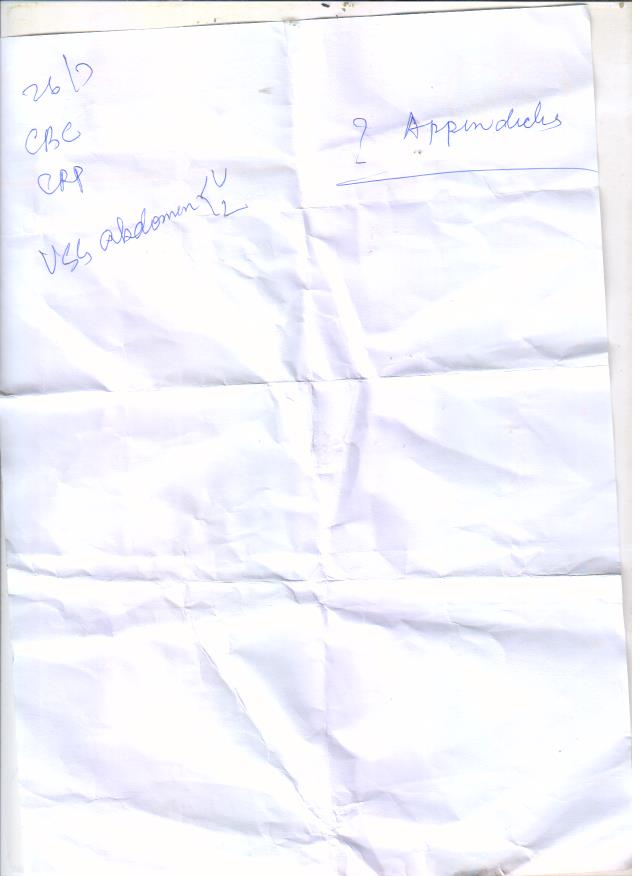 26/7
CBC
CRP
USG abdomen < U
L
? Appendicitis